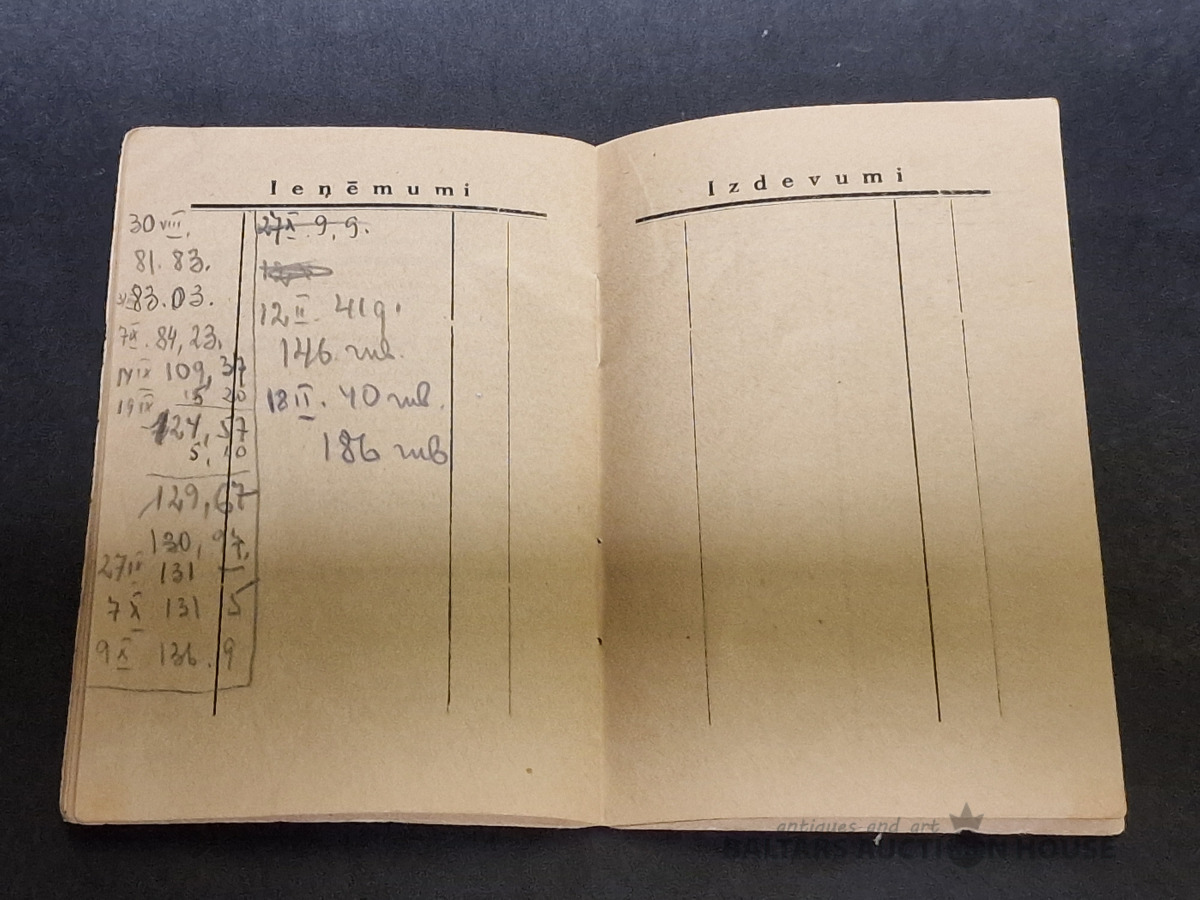 Ieņēmumi
30 VIII.
81. 83.
83.03.
7 IX. 84,23.
14 IX 109,37
19 IX 15 20
124,57
5,10
129,67
130,97.
27 131 —
7 X 131 5
9 X 136.9
27 X. 9,9.
12 II. 41 g.
146. rub.
18 II. 40 rub.
186 rub
Izdevumi
antiques and art
BALTARS AUCTION HOUSE